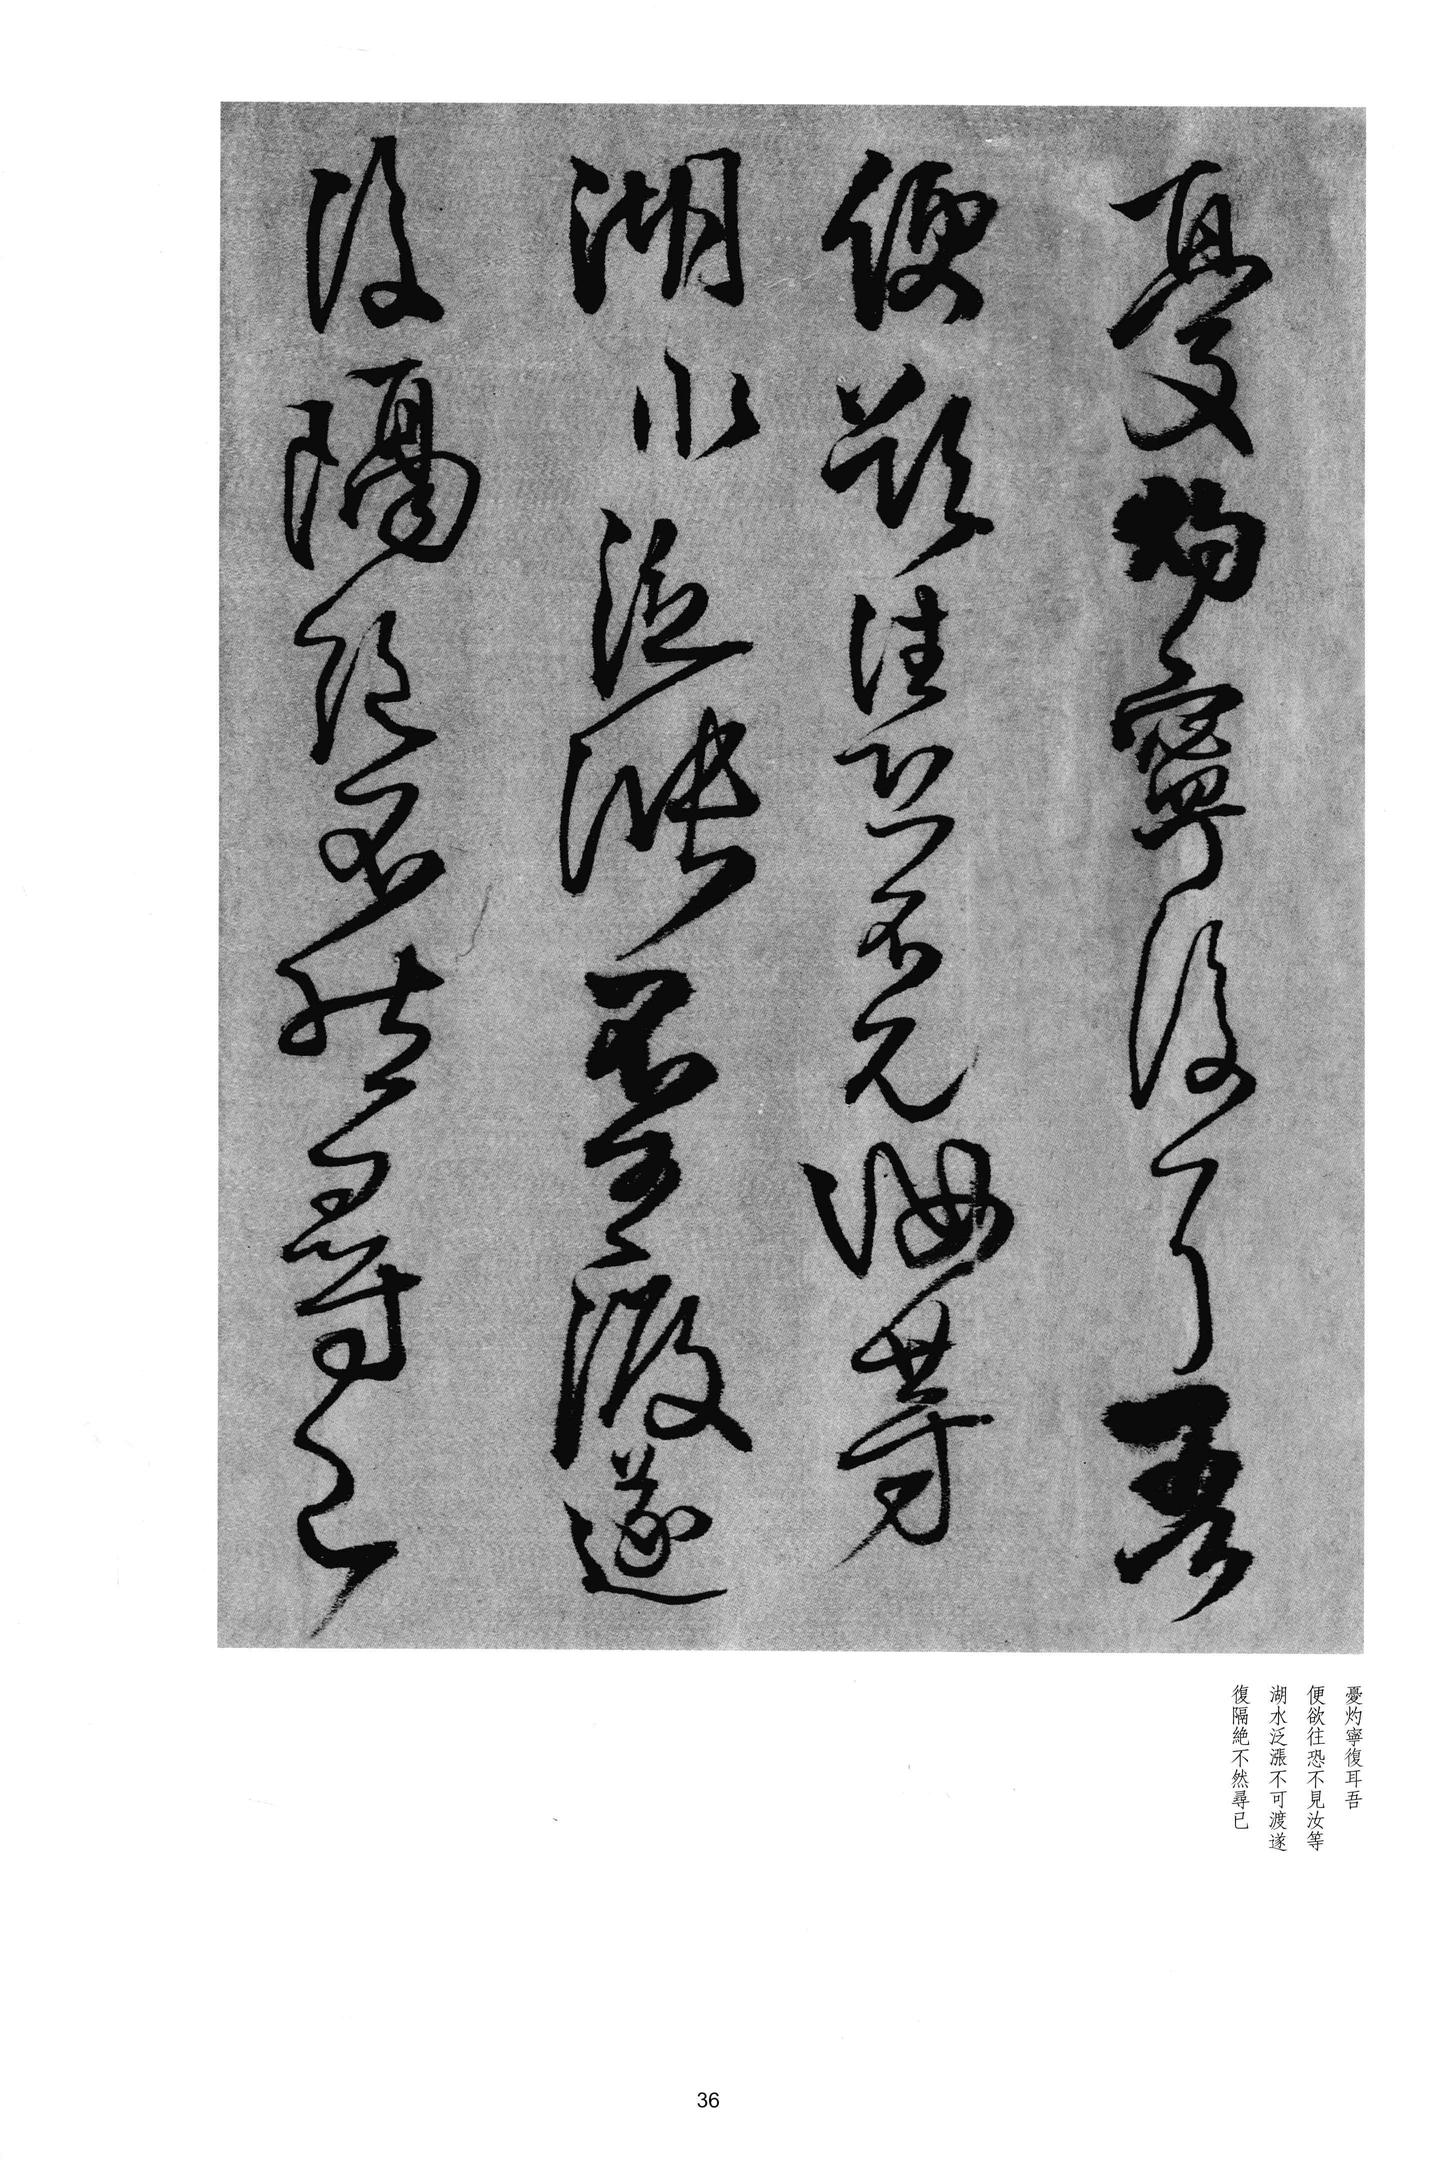 憂灼寧復耳吾
便欲往恐不見汝等
湖水泛漲不可渡遂
復隔絶不然尋已
憂灼寧復耳吾
便欲往恐不見汝等
湖水泛漲不可渡遂
復隔絶不然尋已
36